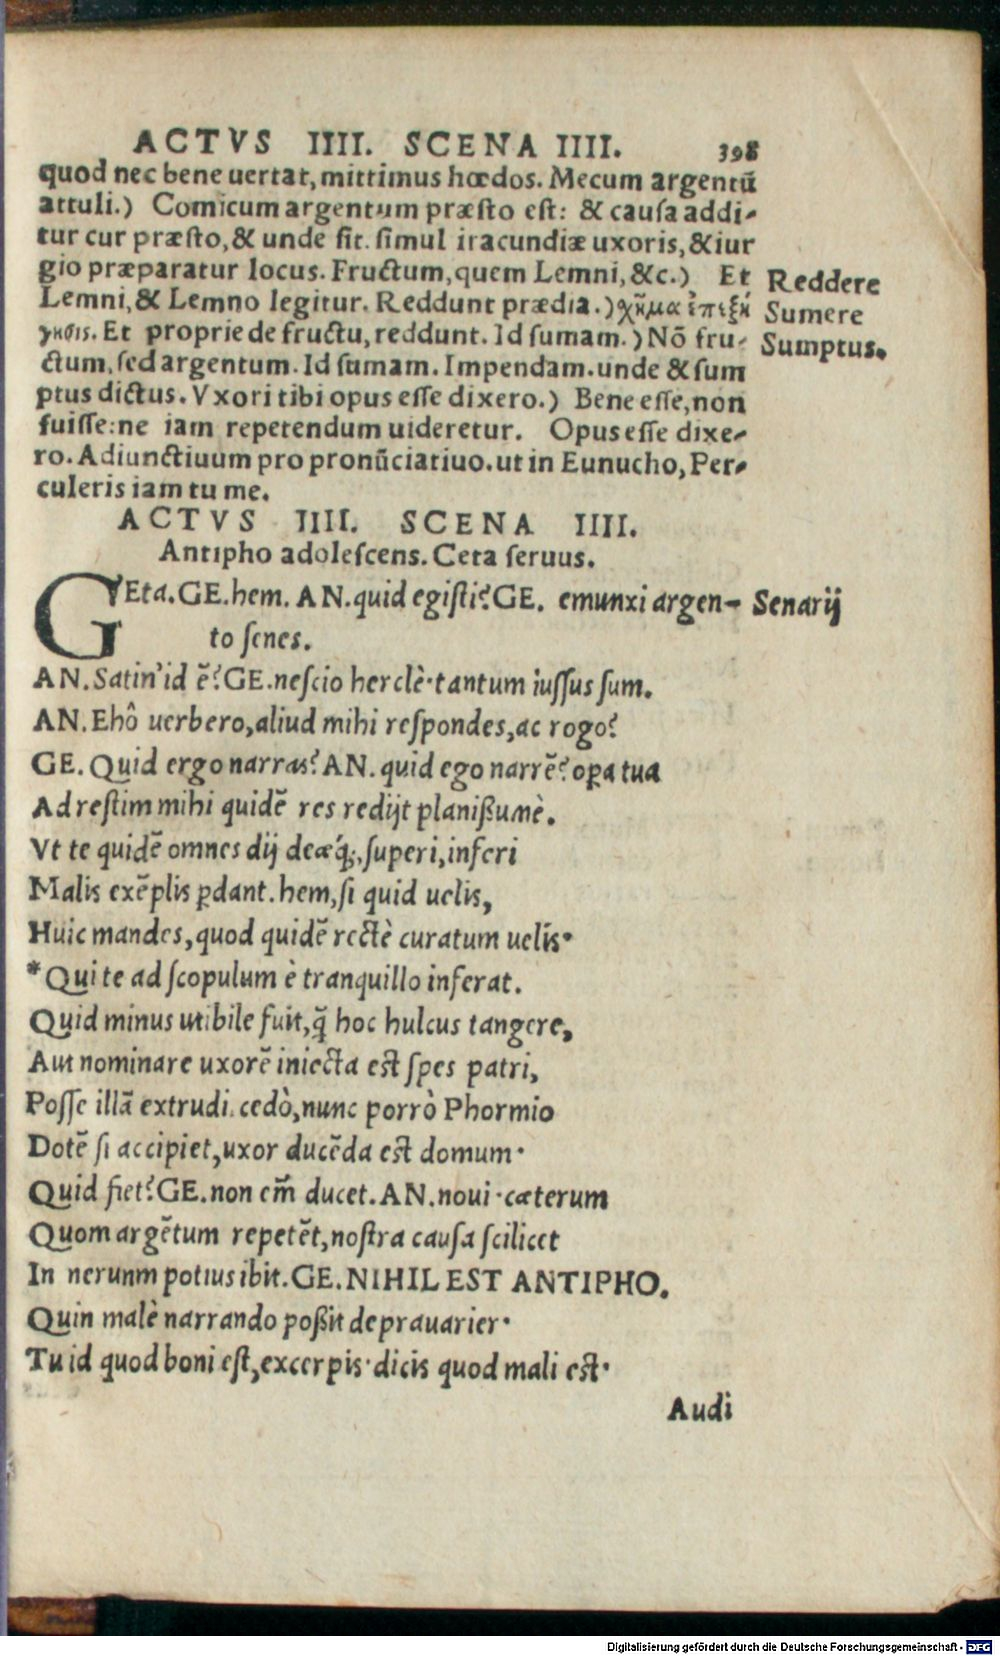 ACTVS IIII. SCENA IIII. 398
quod nec bene uertat, mittimus hœdos. Mecum argentũ
attuli.) Comicum argentum præsto est: & causa addi-
tur cur præsto, & unde sit. simul iracundiæ uxoris, & iur
gio præparatur locus. Fructum, quem Lemni, &c.) Et
Reddere
Lemni, & Lemno legitur. Reddunt prædia.) χῆμα ἐπεξή
Sumere
γησις. Et proprie de fructu, reddunt. Id sumam.) Nõ fru-
Sumptus.
ctum, sed argentum. Id sumam. Impendam. unde & sum
ptus dictus. Vxori tibi opus esse dixero.) Bene esse, non
fuisse: ne iam repetendum uideretur. Opus esse dixe-
ro. Adiunctiuum pro pronũciatiuo. ut in Eunucho, Per-
culeris iam tu me.
ACTVS IIII. SCENA IIII.
Antipho adolescens. Ceta seruus.
GEta. GE. hem. AN. quid egisti? GE. emunxi argen-
Senarij
to senes.
AN. Satin' id ẽ? GE. nescio herclè. tantum iussus sum.
AN. Ehô uerbero, aliud mihi respondes, ac rogo?
GE. Quid ergo narras? AN. quid ego narrẽ? oꝑa tua
Ad restim mihi quidẽ res redijt planißumè.
Vt te quidẽ omnes dij deæq́;, superi, inferi
Malis exẽplis ꝑdant. hem, si quid uelis,
Huic mandes, quod quidẽ rectè curatum uelis.
*Qui te ad scopulum è tranquillo inferat.
Quid minus utibile fuit, q̃ hoc hulcus tangere,
Aut nominare uxorẽ iniecta est spes patri,
Posse illã extrudi. cedò, nunc porrò Phormio
Dotẽ si accipiet, uxor ducẽda est domum.
Quid fiet? GE. non em̃ ducet. AN. noui. cæterum
Quom argẽtum repetẽt, nostra causa scilicet
In nerunm potius ibit. GE. NIHIL EST ANTIPHO.
Quin malè narrando poßit deprauarier.
Tu id quod boni est, excerpis. dicis quod mali est.
Audi
Digitalisierung gefördert durch die Deutsche Forschungsgemeinschaft - DFG